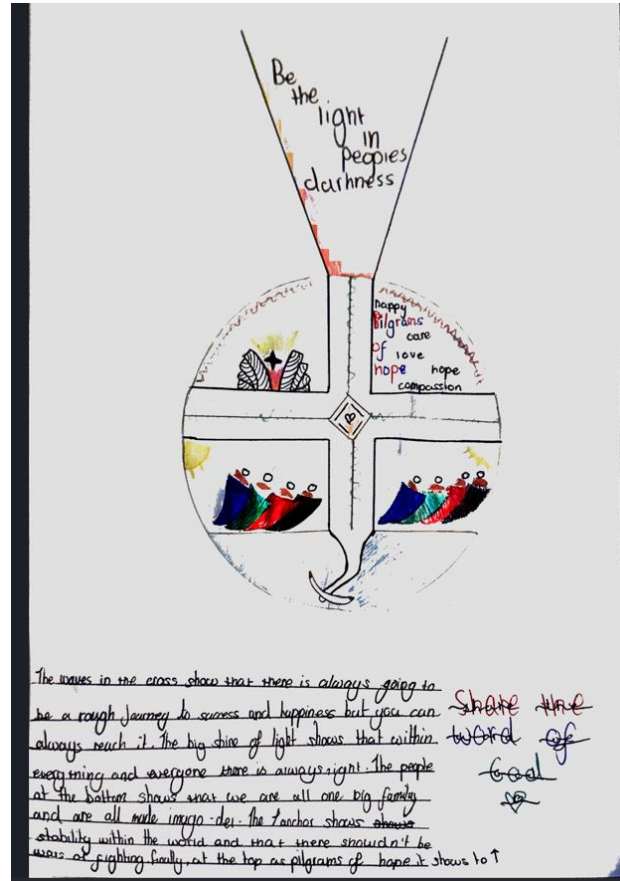 Be
the
light
in
peoples
darkness
happy
Pilgrams
care
of
love
hope hope
compassion
The waves in the cross show that there is always going to
be a rough journey to success and happiness but you can
always reach it. The big shine of light shows that within
everything and everyone there is always light. The people
at the bottom shows that we are all one big family
and are all made imago-dei. The anchor shows shows
stability within the world and that there showldn't be
wars of fighting finally, at the top as pilgrams of hope it shows to ↑
Share the
word of
God